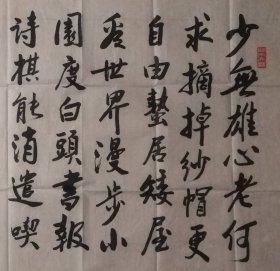 少無雄心老何
求摘掉紗帽更
自由蟄居矮屋
看世界漫步小
園度白頭書報
詩棋能消遣喫